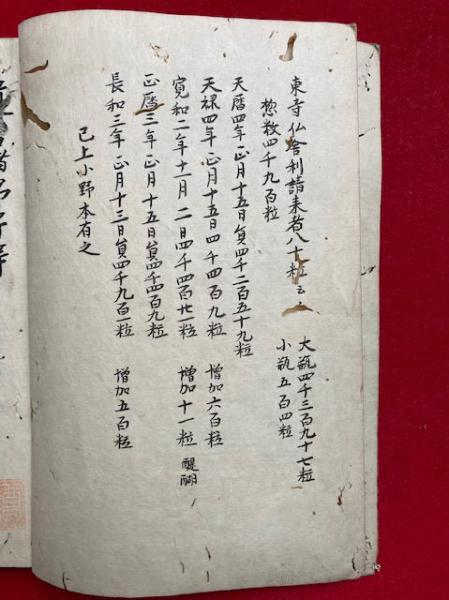 東寺仏舎利請来者八十粒云々
大瓶四千三百九十七粒
小瓶五百四粒
惣数四千九百粒
天暦四年正月十五日員四千二百五十九粒
天禄四年正月十五日四千四百九粒 増加六百粒
寛和二年十一月二日四千四百廿一粒 増加十一粒 醍醐
正暦三年正月十五日員四千四百九粒
長和三年正月十三日員四千九百一粒 増加五百粒
已上小野本有之